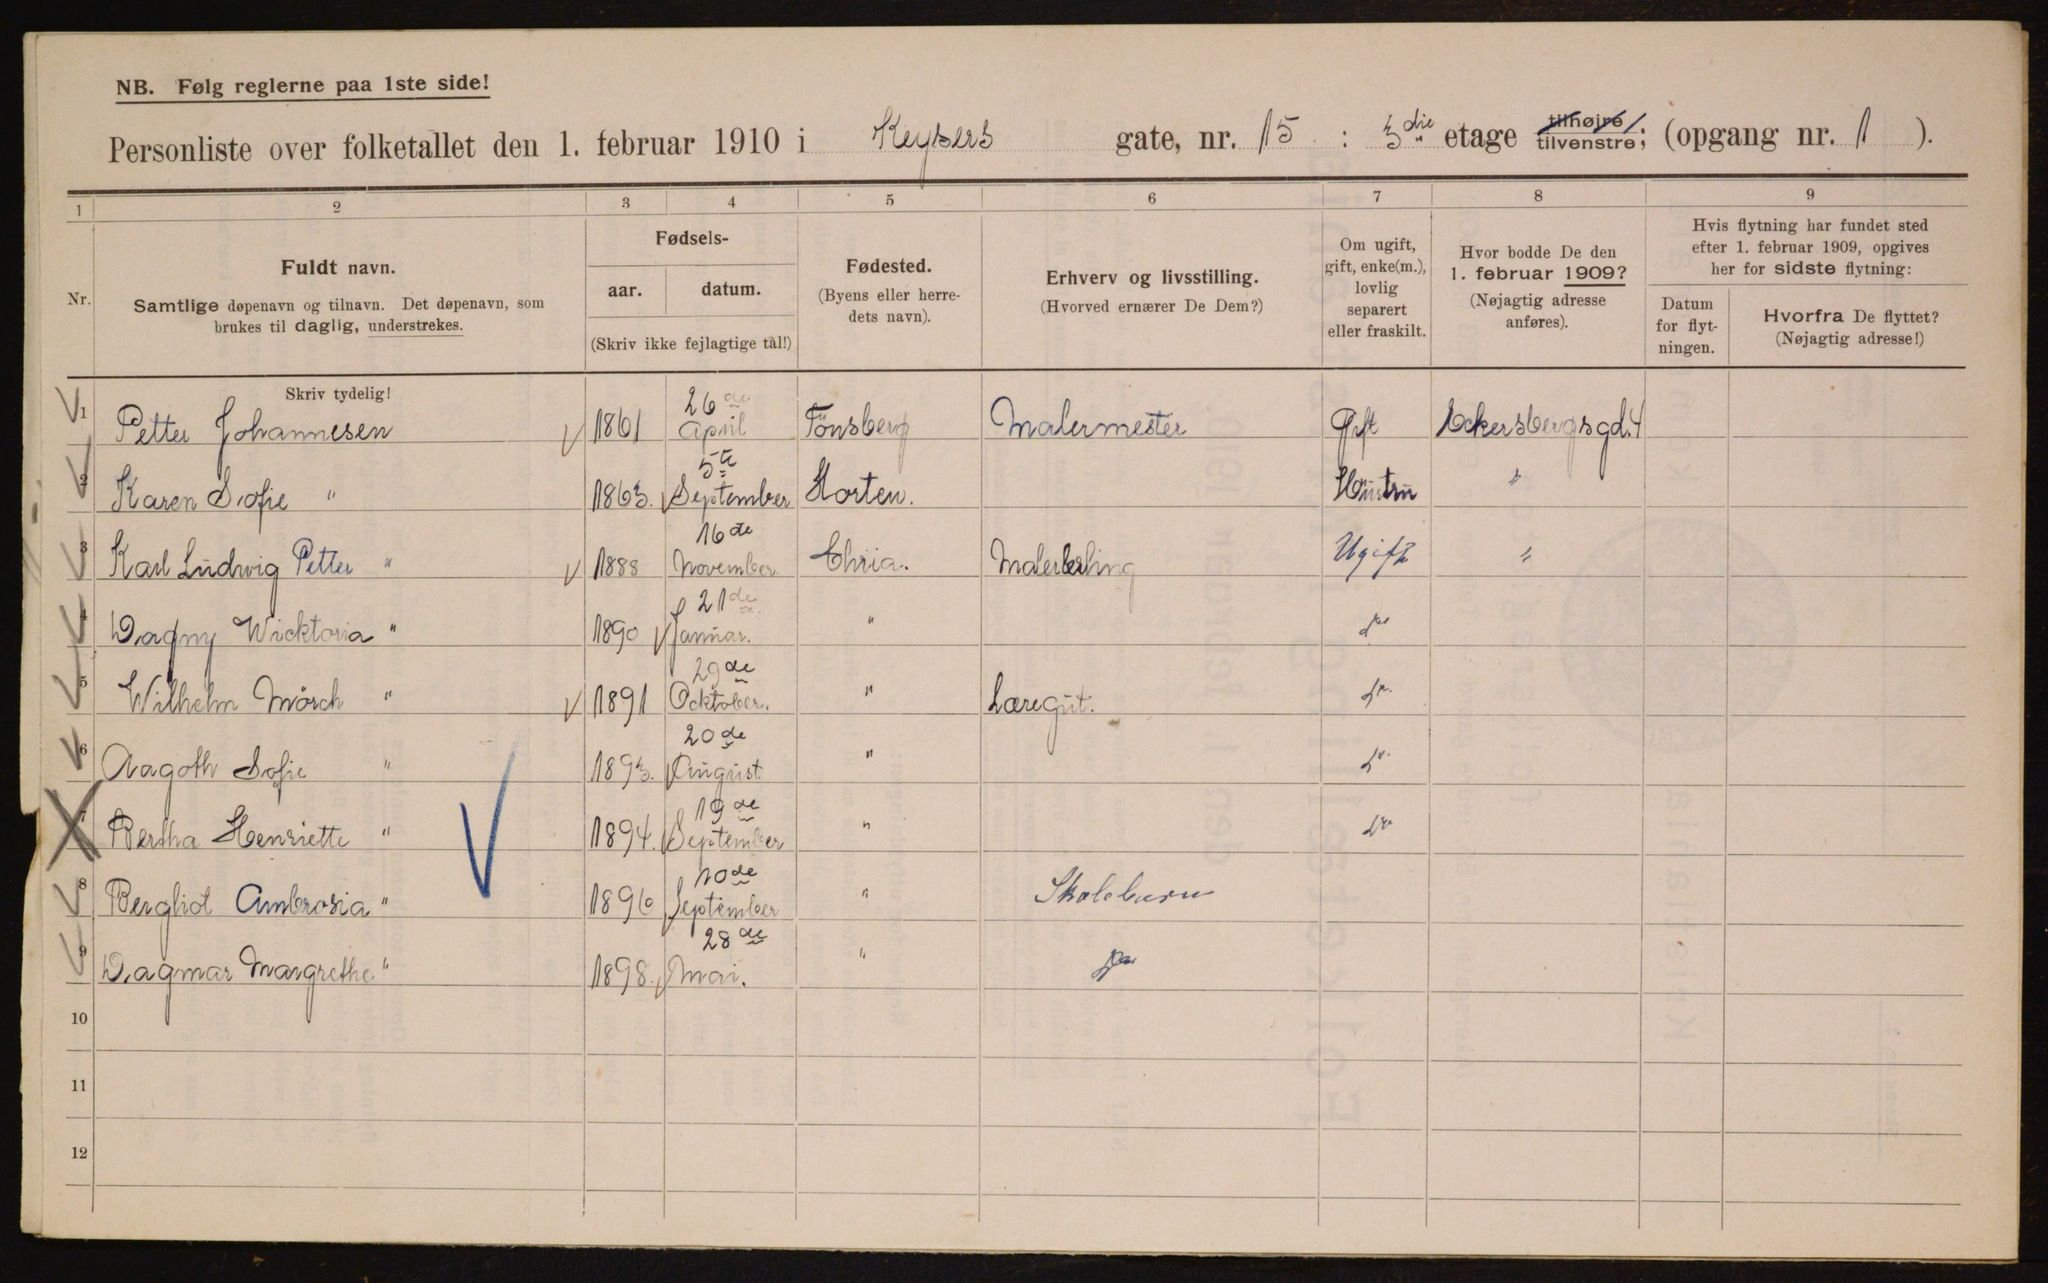 NB. Følg reglerne paa 1ste side!
Personliste over folketallet den 1. februar 1910 i Keysers gate, nr. 15 : 3die etage tilhøjre tilvenstre; (opgang nr. 1 ).
1 2 3 4 5 6 7 8 9
Nr.
Fuldt navn.
Samtlige døpenavn og tilnavn. Det døpenavn, som
brukes til daglig, understrekes.
Fødsels-
aar. datum.
(Skriv ikke fejlagtige tal!)
Fødested.
(Byens eller herre-
dets navn).
Erhverv og livsstilling.
(Hvorved ernærer De Dem?)
Om ugift,
gift, enke(m.),
lovlig
separert
eller fraskilt.
Hvor bodde De den
1. februar 1909?
(Nøjagtig adresse
anføres).
Hvis flytning har fundet sted
efter 1. februar 1909, opgives
her for sidste flytning:
Datum
for flyt-
ningen.
Hvorfra De flyttet?
(Nøjagtig adresse!)
Skriv tydelig!
1 Petter Johannesen 1861 26de April Tönsberg Malermester Gift Eckersbergsgd. 4
2 Karen Sofie " 1863. 5te September Horten. Hustru "
3 Karl Ludvig Petter " 1888 16de November. Chria. Malerlærling Ugift "
4 Dagny Wicktoria " 1890 21de Januar. " do
5 Wilhelm Mörch " 1891 29de Ocktober. " Læregut. do
6 Aagoth Sofie " 1893. 20de August " do
7 Bertha Henriette " 1894. 19de September " do
8 Bergliot Ambrosia " 1896 10de September " Skolebarn
9 Dagmar Margrethe " 1898. 28de Mai. " do
10
11
12